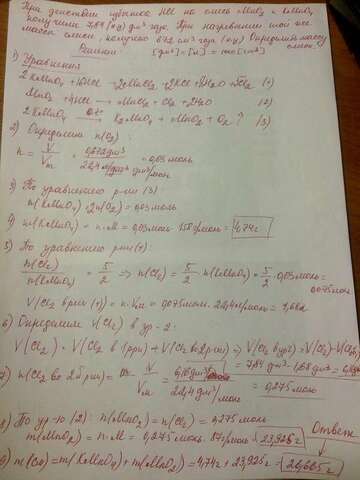 При действии избытка HCl на смесь MnO₂ и KMnO₄
получили 7,84 (н.у) дм³ газа. При нагревании той же
массы смеси, получено 672 см³ газа (н.у) Определить массу
смеси.
Решение [дм³]=[л]=1000[см³]
1) Уравнения
2KMnO₄ + 16HCl → 2MnCl₂ + 2KCl + 8H₂O + 5Cl₂ (1)
MnO₂ + 4HCl → MnCl₂ + Cl₂ + 2H₂O (2)
2KMnO₄ → K₂MnO₄ + MnO₂ + O₂ ↑ (3)
2) Определим n(O₂)
n = V/Vm = 0,672дм³/22,4 дм³/моль = 0,03моль
3) По уравнению р-ии (3):
n(KMnO₄) = n(O₂) = 0,03моль
4) m(KMnO₄) = n·M = 0,03моль·158г/моль = 4,74г
5) По уравнению р-ии (1):
n(Cl₂)/n(KMnO₄) = 5/2 => n(Cl₂) = 5/2 · n(KMnO₄) = 5/2 · 0,03моль =
0,075моль
V(Cl₂ в р-ии (1)) = n·Vm = 0,075моль · 22,4л/моль = 1,68л
6) Определим V(Cl₂) в ур-2:
V(Cl₂) = V(Cl₂ в 1 р-ии) + V(Cl₂ во 2 р-ии) => V(Cl₂ в ур 2) = V(Cl₂) - V(Cl₂)
= 7,84 дм³ - 1,68 дм³ = 6,16
7) n(Cl₂ во 2 р-ии) = V/Vm = 6,16дм³/22,4 дм³/моль = 0,275моль
8) По ур-ю (2): n(MnO₂) = n(Cl₂) = 0,275моль
m(MnO₂) = n·M = 0,275моль · 87г/моль = 23,925г
Ответ
9) m(см) = m(KMnO₄) + m(MnO₂) = 4,74г + 23,925г = 28,665г